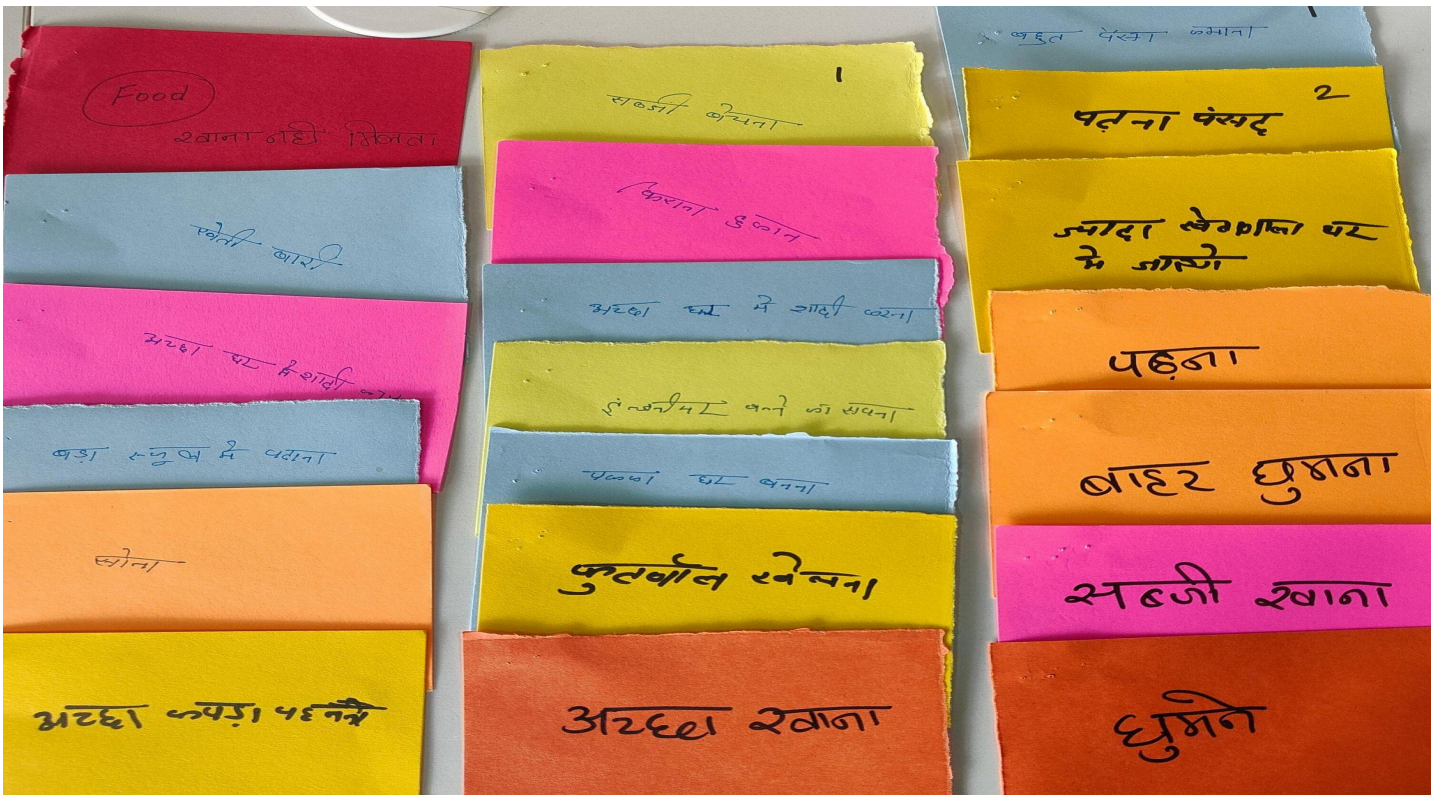 Food
खाना नही मिलता
खेती बारी
अच्छा घर मे शादी करना
बड़ा स्कूल मे पढाना
सोना
अच्छा कपड़ा पहनने
1
सब्जी बेचना
किराना दुकान
अच्छा घर मे शादी करना
इन्जीनियर बनने का सपना
पक्का घर बनना
फुतबॉल खेलना
अच्छा खाना
1
बहुत पैसा कमाना
2
पढ़ना पंसद
ज्यादा घर
मे
पढ़ना
बाहर घुमना
सब्जी खाना
घुमने